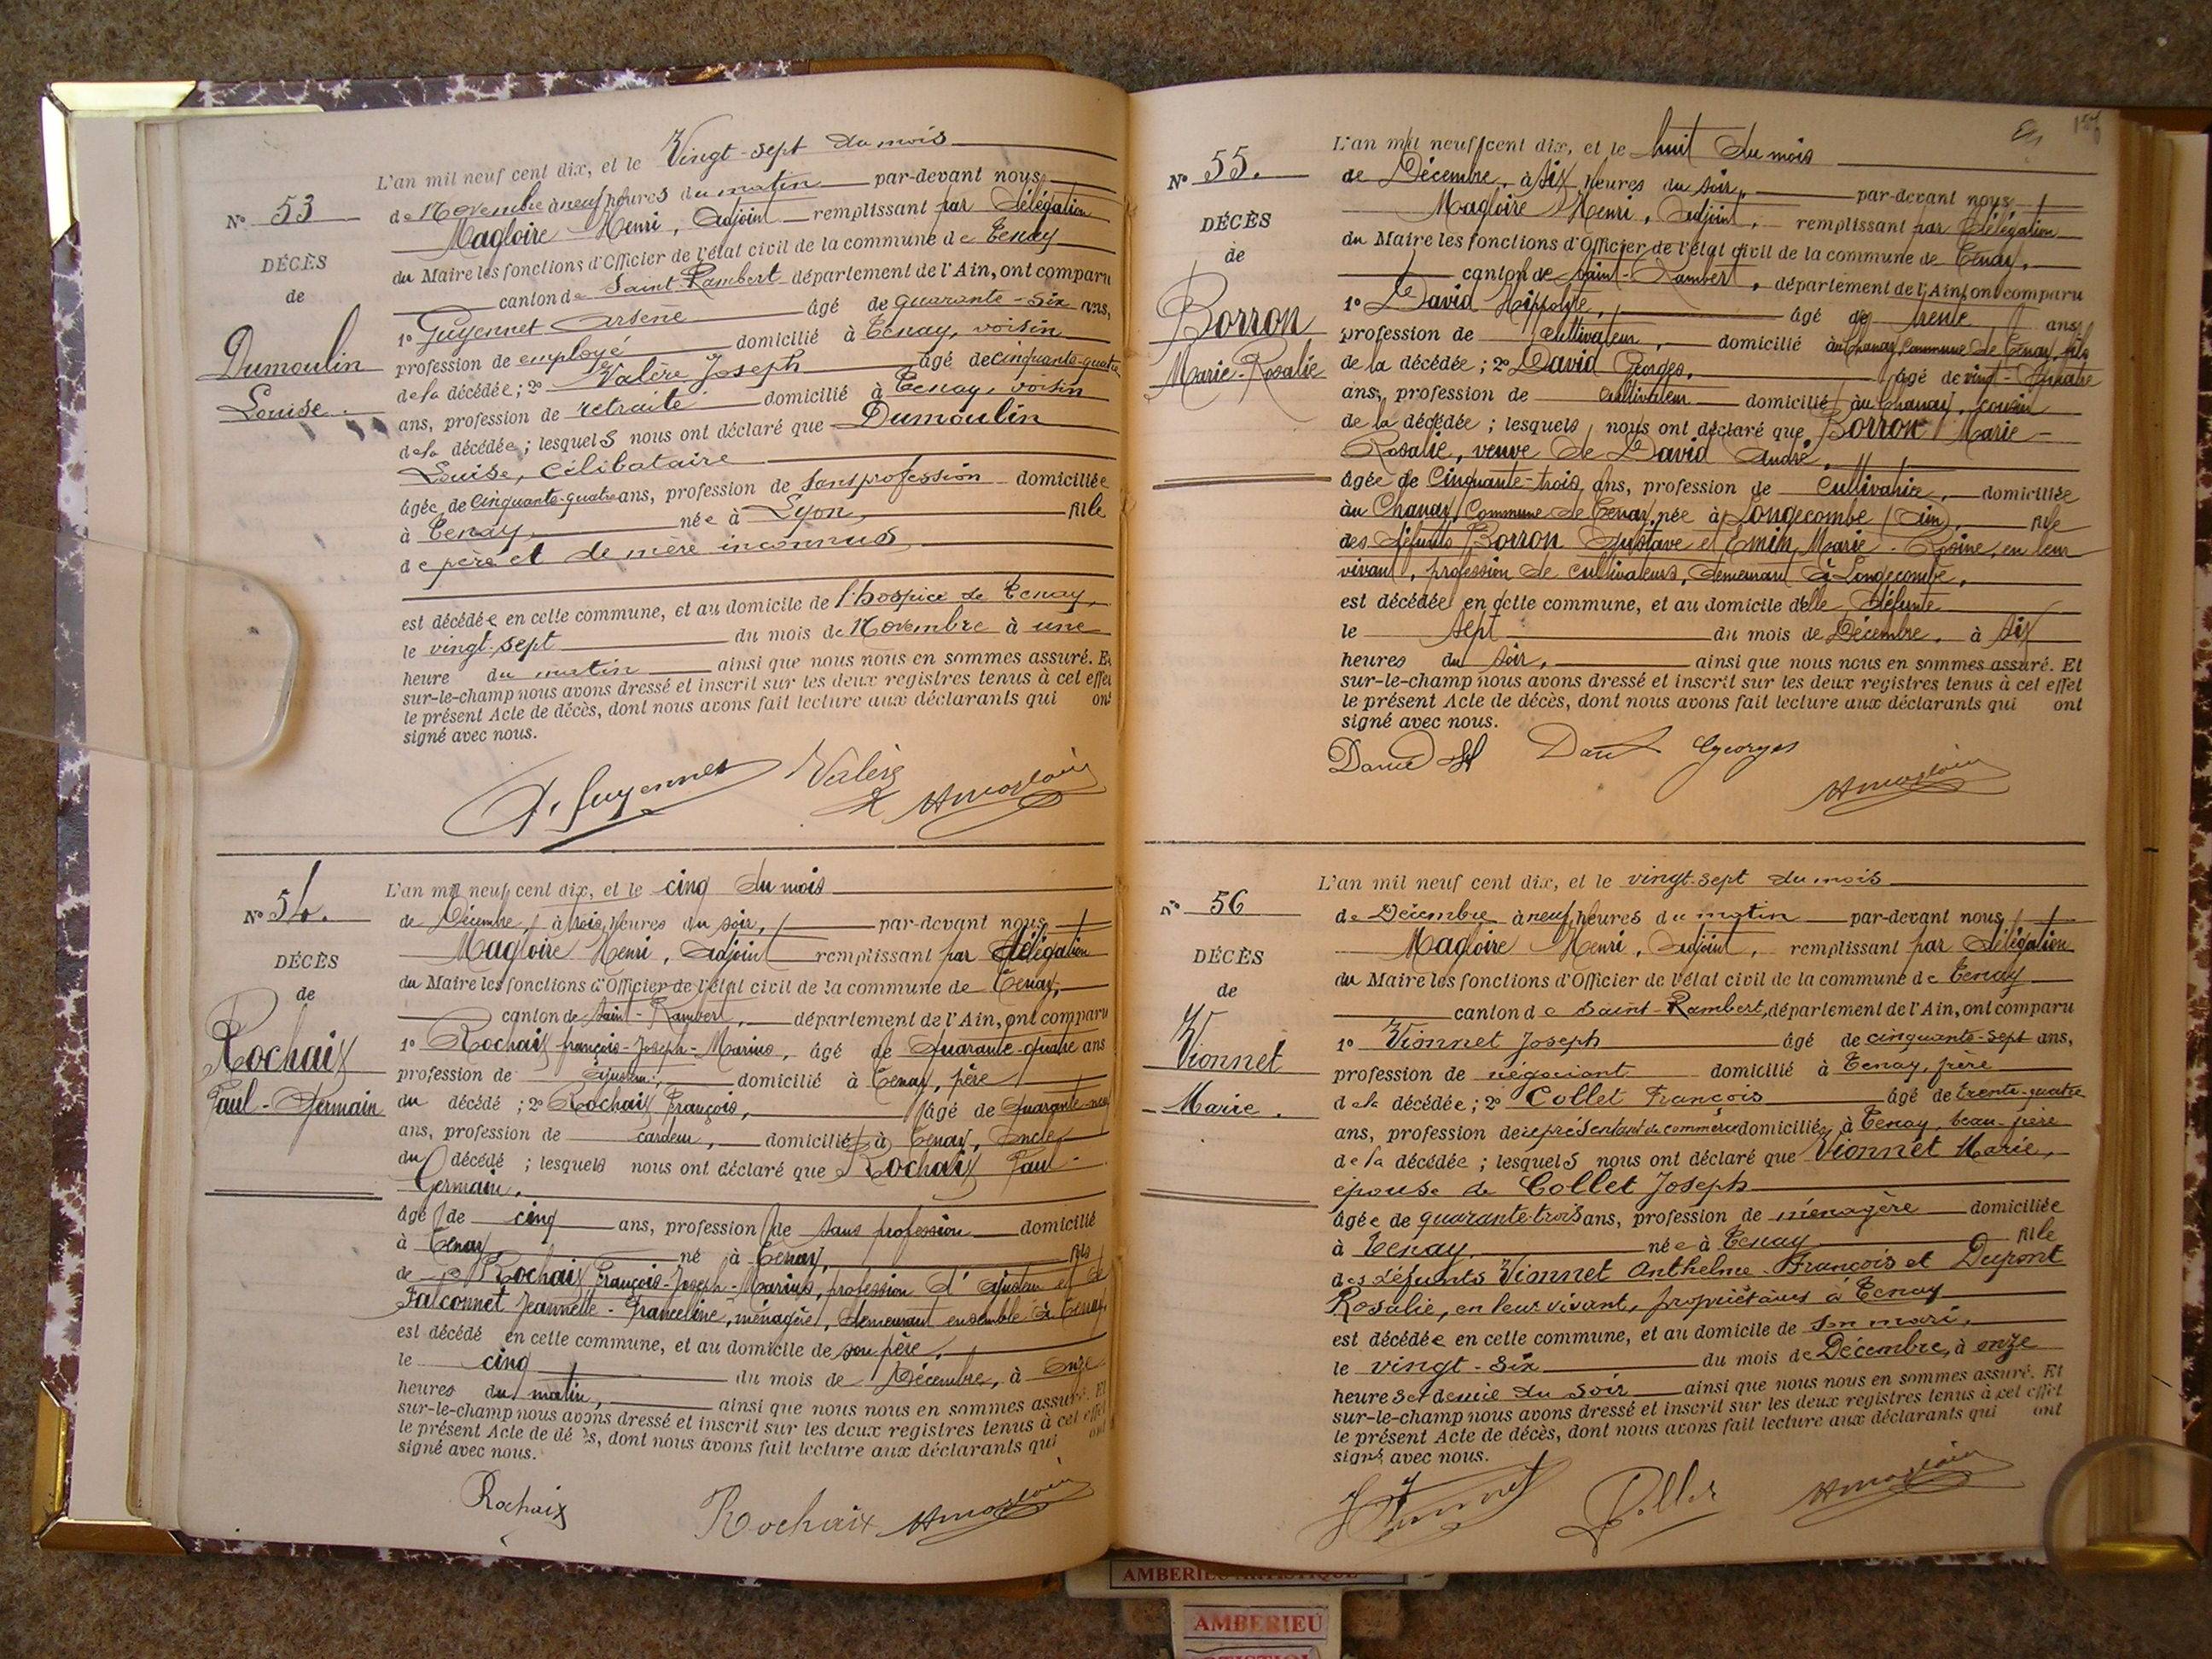 N° 53
DÉCÈS
de
Dumoulin
Louise.
L'an mil neuf cent dix, et le Vingt-sept du mois
de Novembre à neuf heures du matin par-devant nous
Magloire Henri, Adjoint remplissant par Délégation
du Maire les fonctions d'Officier de l'état civil de la commune de Tenay
canton de Saint-Rambert département de l'Ain, ont comparu
1° Guyennet Arsène âgé de quarante-six ans,
profession de employé domicilié à Tenay, voisin
de la décédée; 2° Valère Joseph âgé de cinquante-quatre
ans, profession de retraité domicilié à Tenay, voisin
de la décédée; lesquels nous ont déclaré que Dumoulin
Louise, Célibataire
âgée de cinquante-quatre ans, profession de sans profession domiciliée
à Tenay, née à Lyon, fille
de père et de mère inconnus
est décédée en cette commune, et au domicile de l'hospice de Tenay,
le vingt-sept du mois de Novembre à une
heure du matin ainsi que nous nous en sommes assuré. Et
sur-le-champ nous avons dressé et inscrit sur les deux registres tenus à cet effet
le présent Acte de décès, dont nous avons fait lecture aux déclarants qui ont
signé avec nous.
A. Guyennet Valère HMagloire
N° 54.
DÉCÈS
de
Rochaix
Paul-Germain
L'an mil neuf cent dix, et le cinq du mois
de Décembre, à trois heures du soir, par-devant nous
Magloire Henri, Adjoint remplissant par délégation
du Maire les fonctions d'Officier de l'état civil de la commune de Tenay,
canton de Saint-Rambert, département de l'Ain, ont comparu
1° Rochaix françois-Joseph-Marius, âgé de Quarante-quatre ans
profession de ajusteur, domicilié à Tenay, père
du décédé; 2° Rochaix François, âgé de Quarante-neuf
ans, profession de cardeur, domicilié à Tenay, Oncle
du décédé; lesquels nous ont déclaré que Rochaix Paul-
Germain,
âgé de cinq ans, profession de sans profession domicilié
à Tenay, né à Tenay, fils
de Rochaix François-Joseph-Marius, profession d'ajusteur et de
Falconnet Jeannette-Franceline, ménagère, demeurant ensemble à Tenay,
est décédé en cette commune, et au domicile de son père,
le cinq du mois de Décembre, à Onze
heures du matin, ainsi que nous nous en sommes assuré. Et
sur-le-champ nous avons dressé et inscrit sur les deux registres tenus à cet effet
le présent Acte de décès, dont nous avons fait lecture aux déclarants qui ont
signé avec nous.
Rochaix Rochaix HMagloire
N° 55.
DÉCÈS
de
Borron
Marie-Rosalie
L'an mil neuf cent dix, et le huit du mois
de Décembre, à six heures du soir, par-devant nous
Magloire Henri, Adjoint, remplissant par Délégation
du Maire les fonctions d'Officier de l'état civil de la commune de Tenay,
canton de Saint-Rambert, département de l'Ain, ont comparu
1° David Hippolyte, âgé de trente ans,
profession de cultivateur, domicilié au Chanay, Commune de Tenay, fils
de la décédée; 2° David Georges, âgé de vingt-quatre
ans, profession de cultivateur domicilié au Chanay, cousin
de la décédée; lesquels nous ont déclaré que, Borron Marie-
Rosalie, veuve de David André,
âgée de Cinquante-trois ans, profession de Cultivatrice, domiciliée
au Chanay, Commune de Tenay, née à Longecombe (Ain), fille
des défunts Borron Gustave et Emin Marie-Rosine, en leur
vivant, profession de cultivateurs, demeurant à Longecombe,
est décédée en cette commune, et au domicile de la Défunte
le sept du mois de Décembre, à six
heures du soir, ainsi que nous nous en sommes assuré. Et
sur-le-champ nous avons dressé et inscrit sur les deux registres tenus à cet effet
le présent Acte de décès, dont nous avons fait lecture aux déclarants qui ont
signé avec nous.
David H David Georges HMagloire
N° 56
DÉCÈS
de
Vionnet
Marie.
L'an mil neuf cent dix, et le vingt-sept du mois
de Décembre à neuf heures du matin par-devant nous
Magloire Henri, Adjoint, remplissant par Délégation
du Maire les fonctions d'Officier de l'état civil de la commune de Tenay
canton de Saint-Rambert, département de l'Ain, ont comparu
1° Vionnet Joseph âgé de cinquante-sept ans,
profession de négociant domicilié à Tenay, frère
de la décédée; 2° Collet François âgé de trente-quatre
ans, profession de représentant de commerce domicilié à Tenay, beau-frère
de la décédée; lesquels nous ont déclaré que Vionnet Marie,
épouse de Collet Joseph
âgée de quarante-trois ans, profession de ménagère domiciliée
à Tenay, née à Tenay fille
des défunts Vionnet Anthelme-François et Dupont
Rosalie, en leur vivant, propriétaires à Tenay
est décédée en cette commune, et au domicile de son mari,
le vingt-six du mois de Décembre, à onze
heures et demie du soir ainsi que nous nous en sommes assuré. Et
sur-le-champ nous avons dressé et inscrit sur les deux registres tenus à cet effet
le présent Acte de décès, dont nous avons fait lecture aux déclarants qui ont
signé avec nous.
J Vionnet Collet HMagloire
AMBERIEU ARTISTIQUE
AMBERIEU